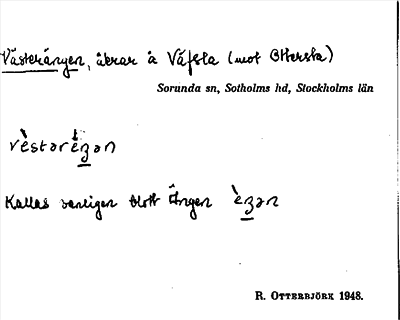 Västerängen, åkrar å Väfsla (mot Ottersta)
Sorunda sn, Sotholms hd, Stockholms län
vèstərèŋən
Kallas vanligen blott Ängen èŋən
R. OTTERBJÖRK 1948.